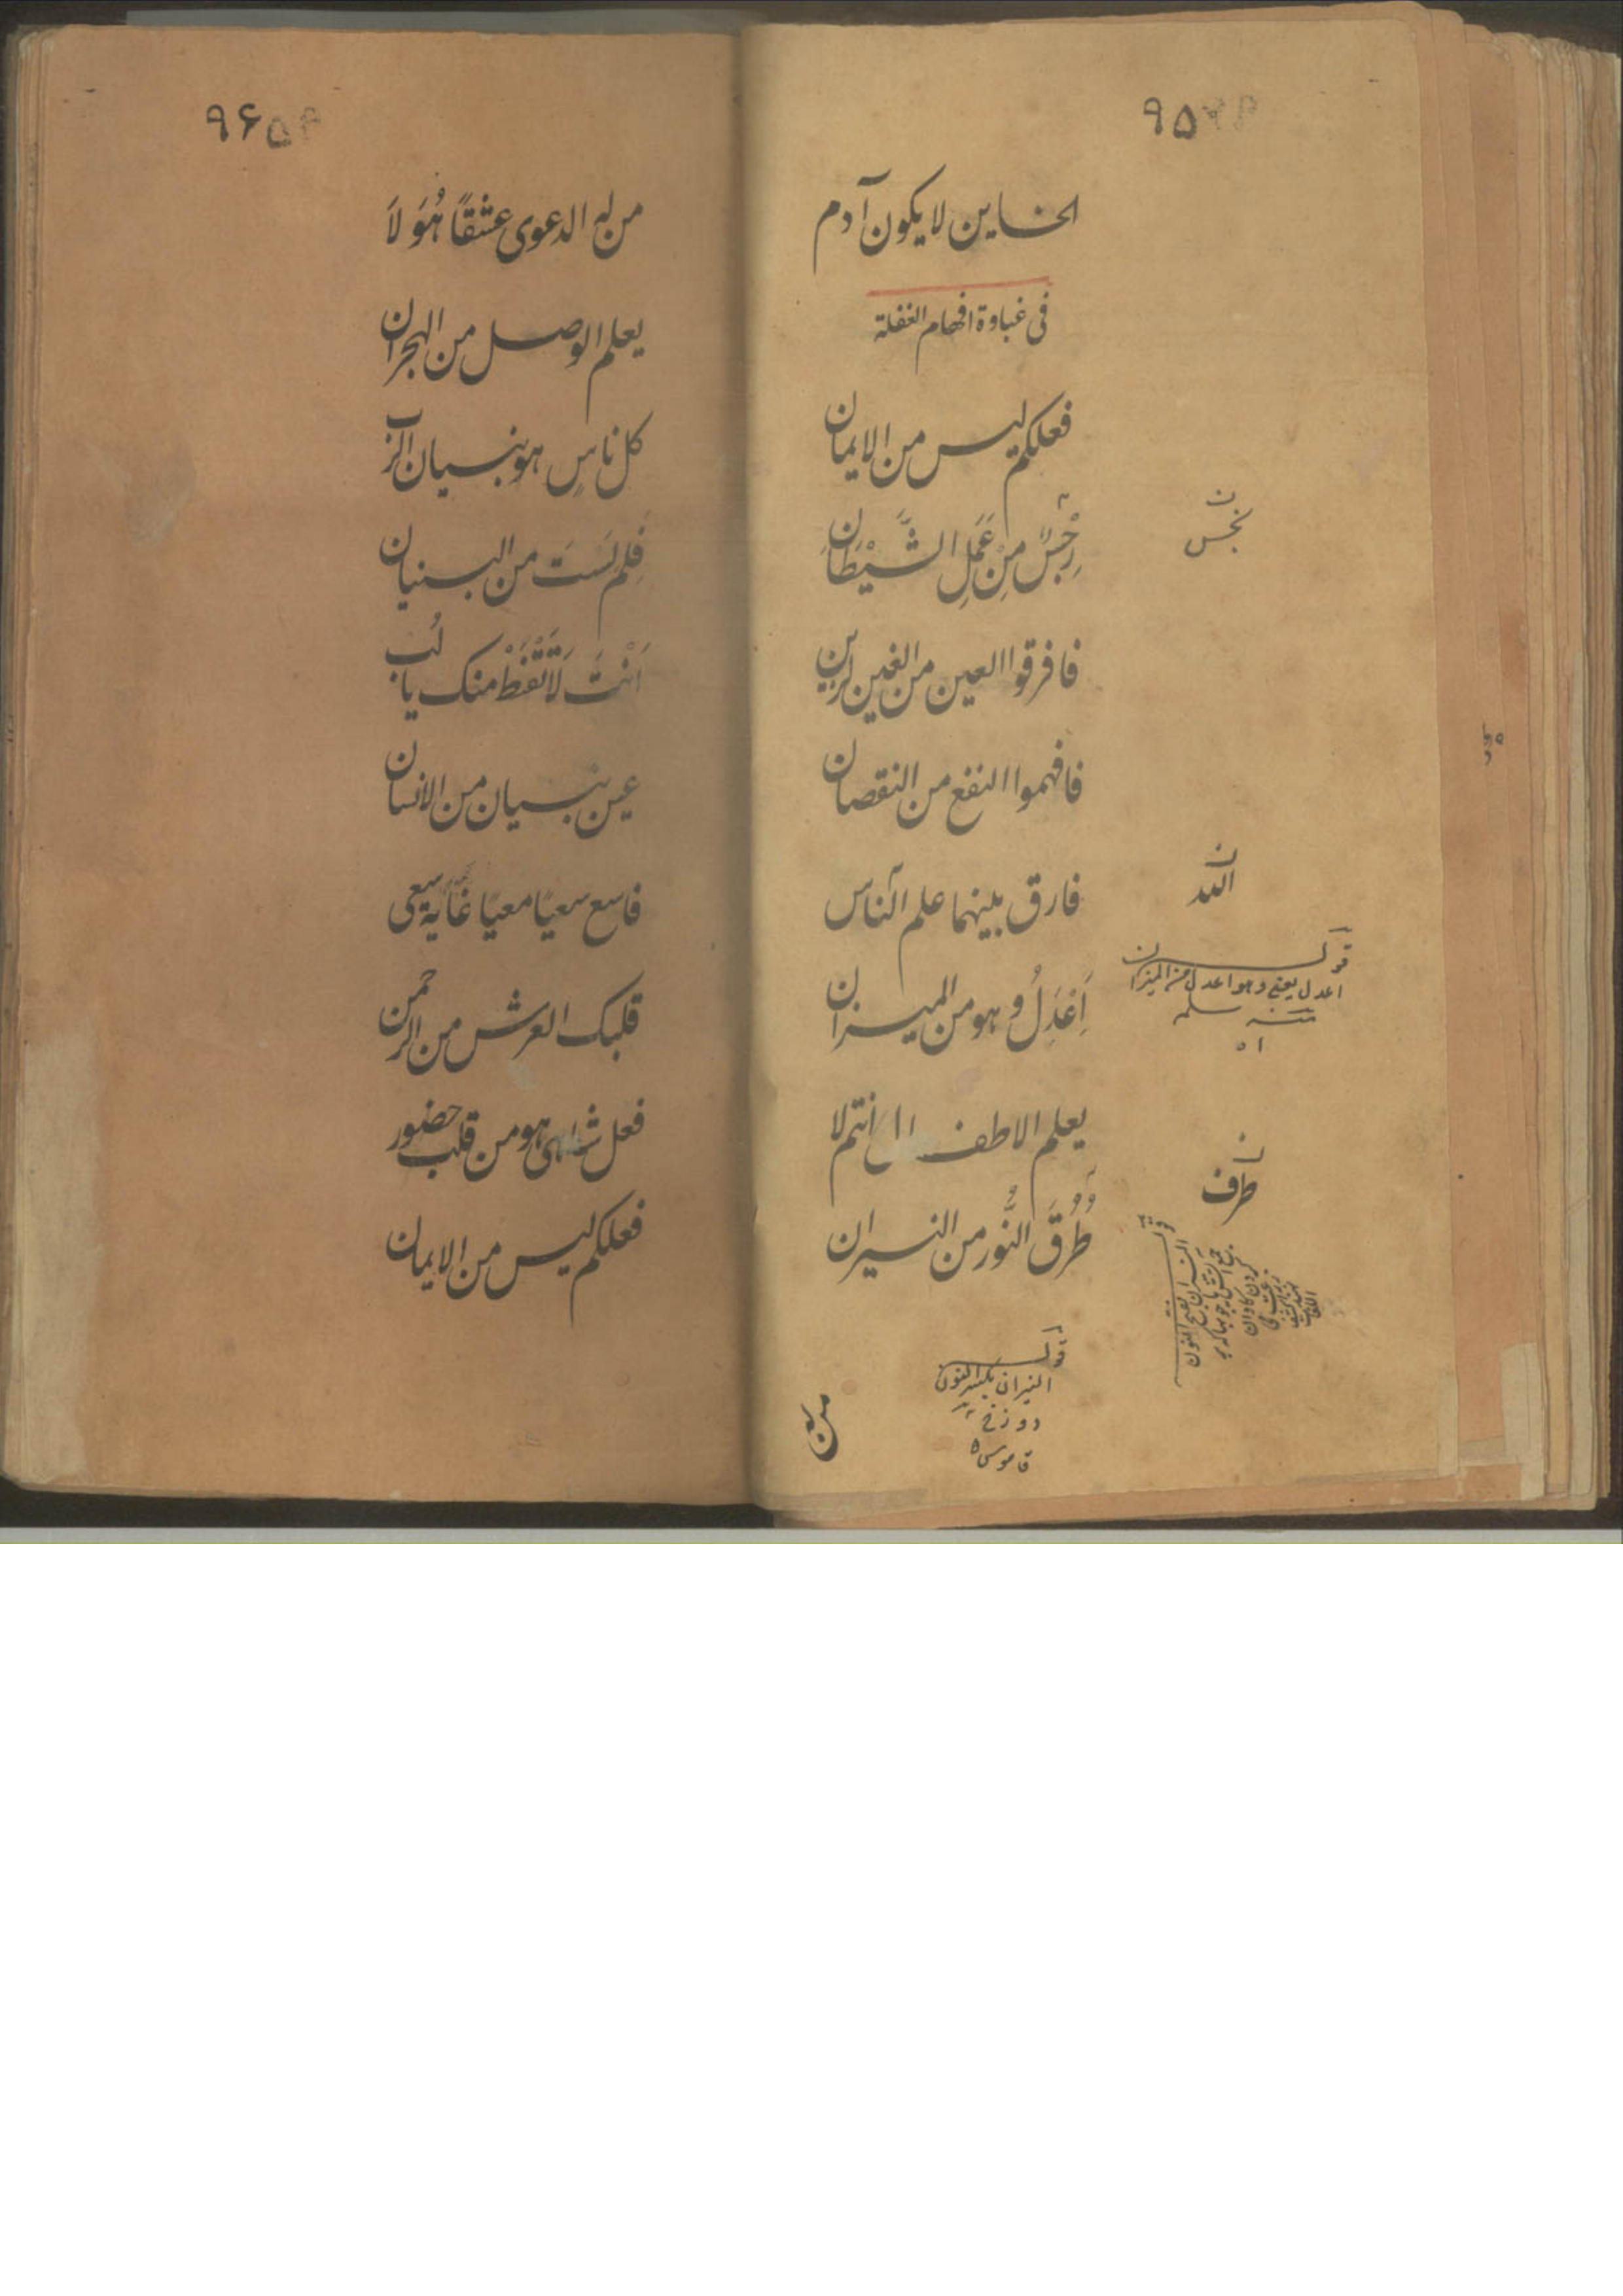 ۹۵
الخاین لا یکون آدم
فی غباوة افهام الغفلة
فعلکم لیس من الایمان
رِجْسٌ مِنْ عَمَلِ الشَّیْطَانِ
نجس
فافرقوا العین من الغین لرین
فافهموا النفع من النقصان
فارق بینهما علم النّاس
الله
اَعْدَلُ و هو من المیزان
قوله
اعدل یعنی و هو اعدل من المیزان
منه سلمه
یعلم الاطف انتم لا
طُرُقَ النُّور من النیران
طرف
قوله
النیران بکسر النون
دوزخ
قاموس
من له
۹۶
من له الدعوی عشقًا هُوَ لَا
یعلم الوصل من الهجران
کل ناسٍ هو بنسیان الرب
فَلِم لَسْتَ من البنیان
اَنْتَ لَا تَقْنَطْ منک یا لب
عین نسیان من الانسان
فاسع سعیًا معیًا غایة سعی
قلبک العرش من الرحمن
فعل شاهی هو من قلب حضور
فعلکم لیس من الایمان